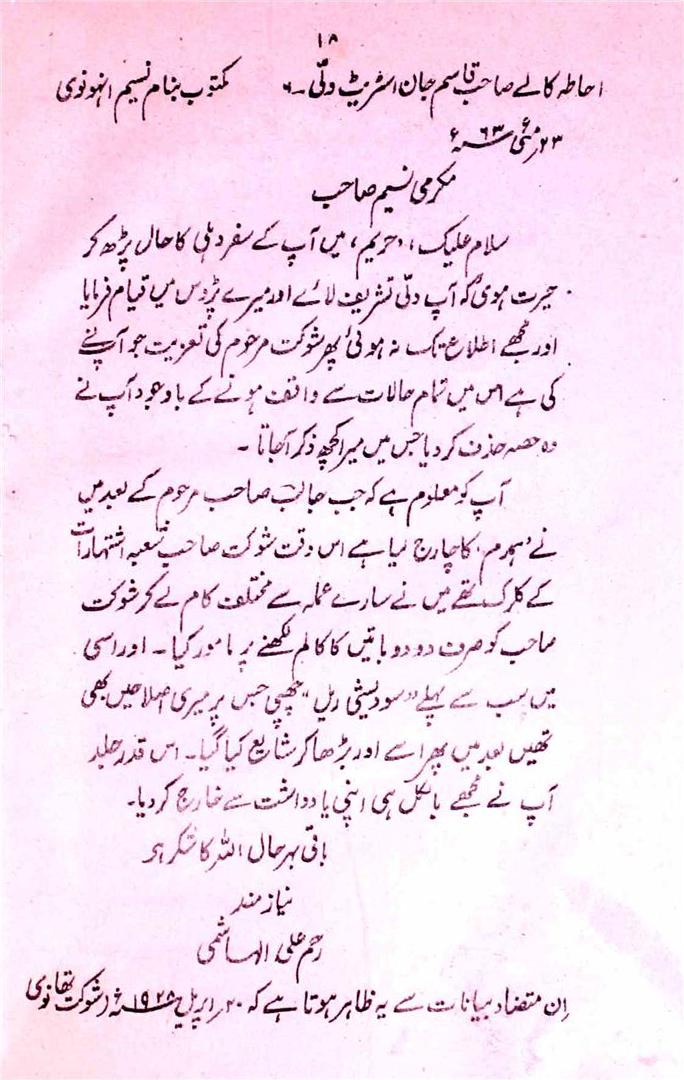 ۱۸
احاطہ کالے صاحب قاسم جان اسٹریٹ دلّی ۔ ۶ مکتوب بنام نسیم انہونوی
۲۳ مئی ۶۳ء
مکرمی نسیم صاحب
سلام علیک، 'حریم' میں آپ کے سفر دہلی کا حال پڑھ کر
حیرت ہوئی کہ آپ دلّی تشریف لائے اور میرے پڑوس میں قیام فرمایا
اور مجھے اطلاع تک نہ ہوئی پھر شوکت مرحوم کی تعزیت جو آپ نے
کی ہے اس میں تمام حالات سے واقف ہونے کے باوجود آپ نے
وہ حصہ حذف کر دیا جس میں میرا کچھ ذکر آجاتا ۔
آپ کو معلوم ہے کہ جب جالب صاحب مرحوم کے بعد میں
نے 'ہمدم' کا چارج لیا ہے اس وقت شوکت صاحب شعبہ اشتہارات
کے کلرک تھے میں نے سارے عملہ سے مختلف کام لے کر شوکت
صاحب کو صرف دو دو باتیں کا کالم لکھنے پر مامور کیا ۔ اور اسی
میں سب سے پہلے "سودیشی ریل" چھپی جس پر میری اصلاحیں بھی
تھیں بعد میں پھر اسے اور بڑھا کر شایع کیا گیا ۔ اس قدر جلد
آپ نے مجھے بالکل ہی اپنی یادداشت سے خارج کر دیا۔
باقی بہر حال اللہ کا شکر ہے
نیاز مند
رحم علی الہاشمی
اِن متضاد بیانات سے یہ ظاہر ہوتا ہے کہ ۲۰ر اپریل ۱۹۲۸ء (شوکت تھانوی